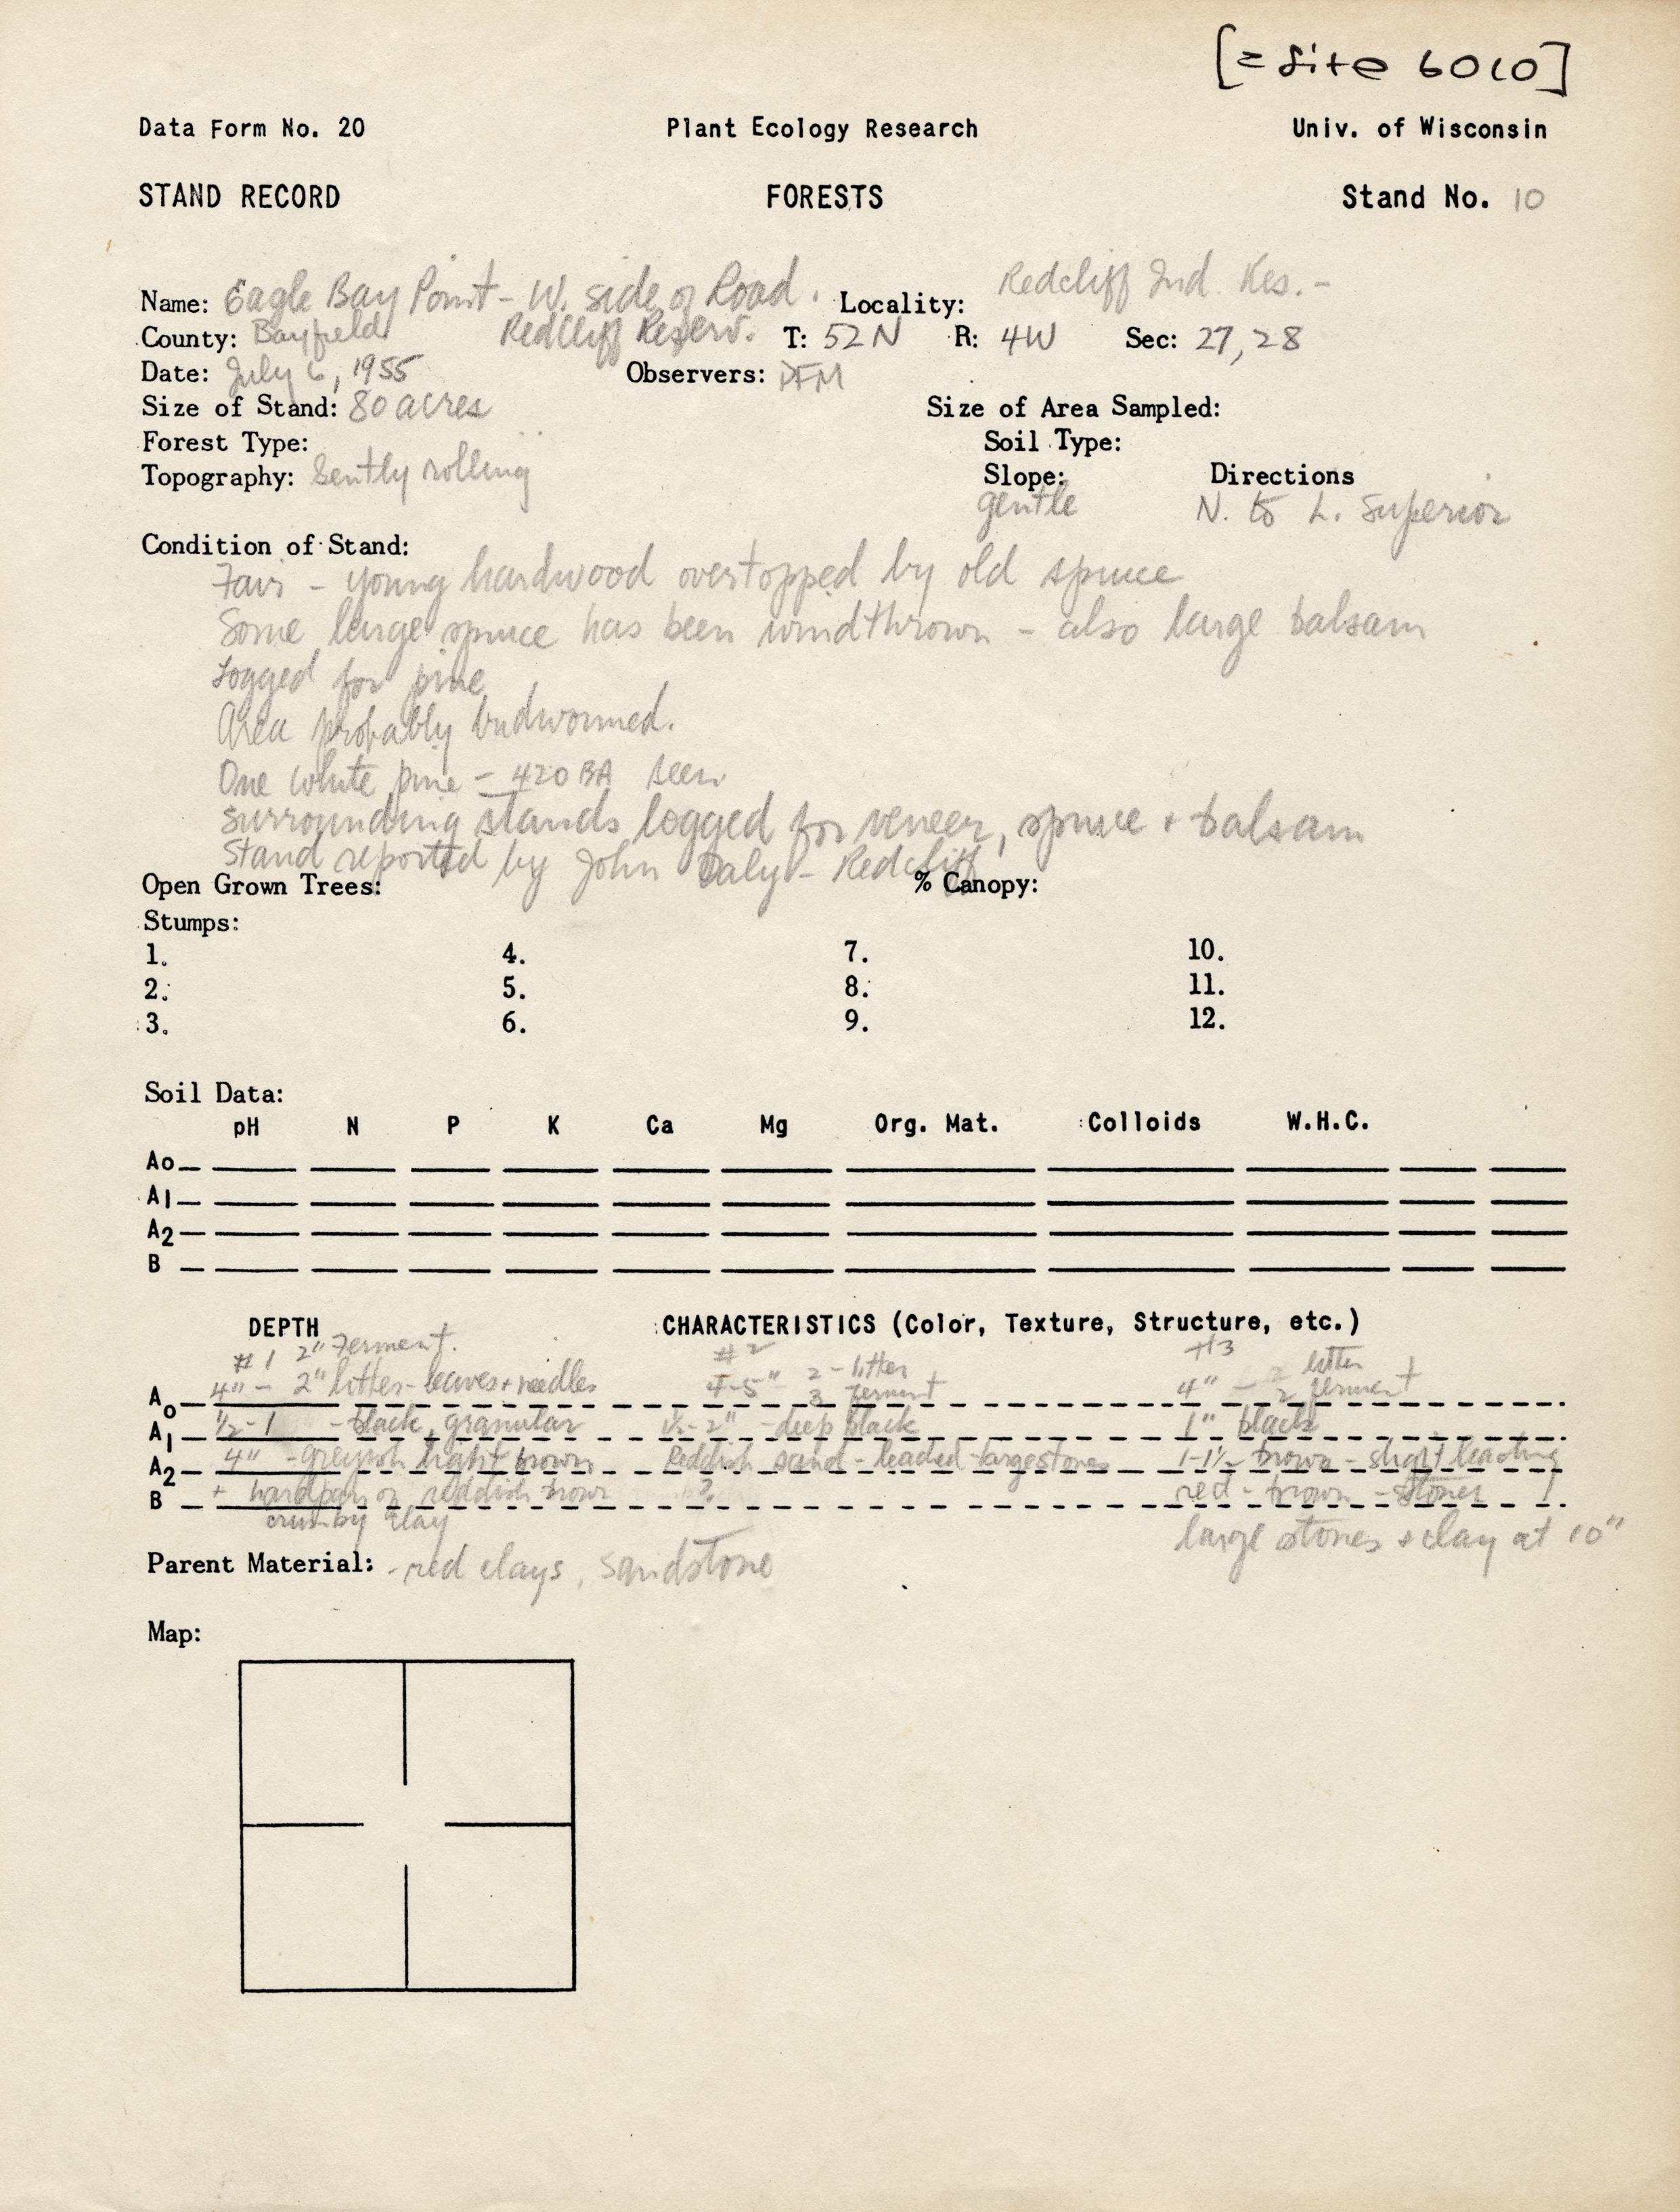 [= Site 6010]
Data Form No. 20 Plant Ecology Research Univ. of Wisconsin
STAND RECORD FORESTS Stand No. 10
Name: Eagle Bay Point - W. side of Road. Locality: Redcliff Ind. Res. -
County: Bayfield Redcliff Reserv. T: 52N R: 4W Sec: 27, 28
Date: July 6, 1955 Observers: PFM
Size of Stand: 80 acres Size of Area Sampled:
Forest Type: Soil Type:
Topography: Gently rolling Slope: Directions
gentle N. to L. Superior
Condition of Stand:
Fair - young hardwood overtopped by old spruce
Some large spruce has been windthrown - also large balsam
Logged for pine
Area probably budwormed.
One white pine - 420 BA seen
surrounding stands logged for veneer, spruce + balsam
Stand reported by John Daly - Redcliff
Open Grown Trees: % Canopy:
Stumps:
1. 4. 7. 10.
2. 5. 8. 11.
3. 6. 9. 12.
Soil Data:
pH N P K Ca Mg Org. Mat. Colloids W.H.C.
Ao
A1
A2
B
DEPTH CHARACTERISTICS (Color, Texture, Structure, etc.)
#1 2" Ferment. #2 #3
Ao 4" - 2" litter - leaves + needles 4-5" 2 - litter 3 ferment 4" - 2 litter 2 ferment
A1 1/2-1 - black, granular 1 1/2-2" - deep black 1" black
A2 4" - greyish light brown Reddish sand - leached - large stones 1-1 1/2 brown - slight leaching
B + hardpan of reddish brown ? red-brown - stones
crumby clay large stones + clay at 10"
Parent Material: - red clays, sandstone
Map: